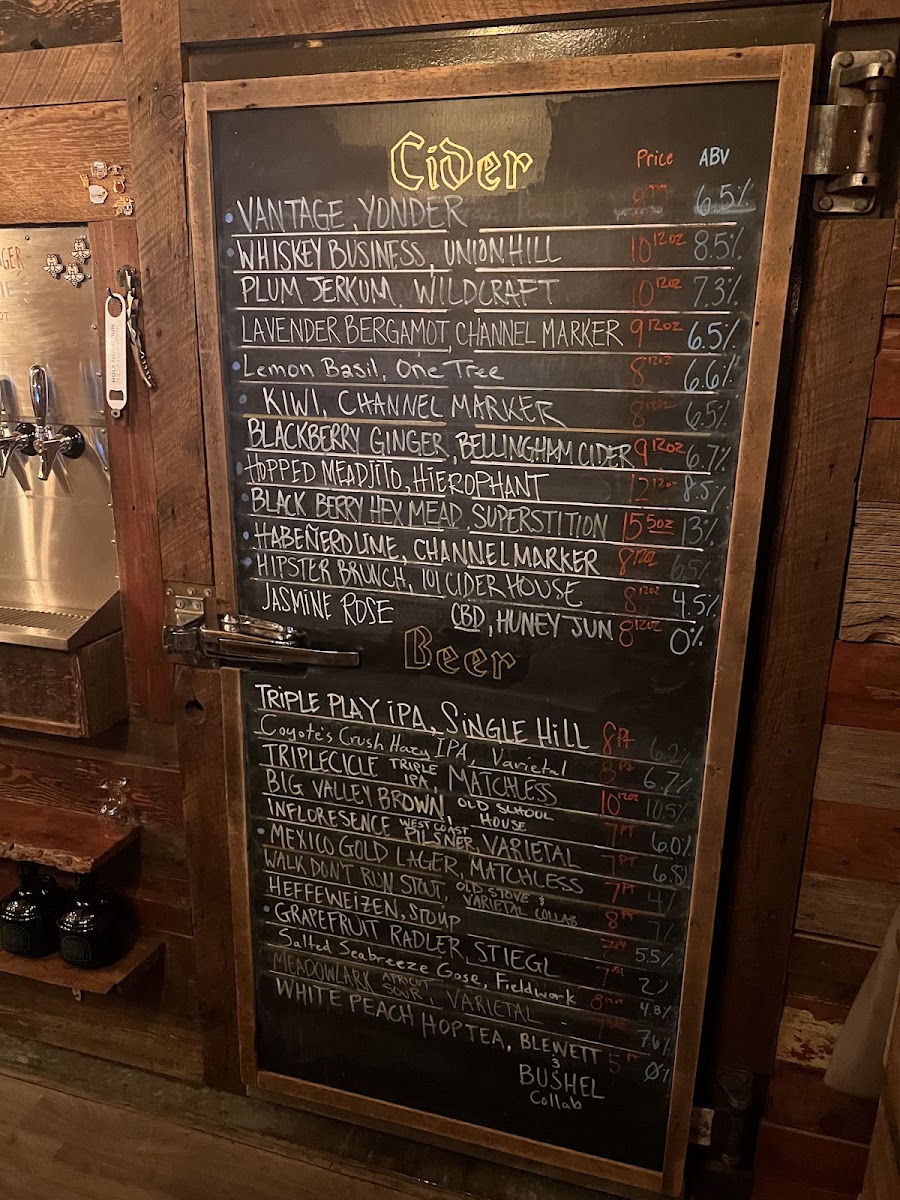 Cider Price ABV
VANTAGE, YONDER 6.5%
WHISKEY BUSINESS, UNION HILL 10 12oz 8.5%
PLUM JERKUM, WILDCRAFT 10 12oz 7.3%
LAVENDER BERGAMOT, CHANNEL MARKER 9 12oz 6.5%
Lemon Basil, One Tree 8 12oz 6.6%
KIWI, CHANNEL MARKER 8 12oz 6.5%
BLACKBERRY GINGER, BELLINGHAM CIDER 9 12oz 6.7%
HOPPED MEADJITO, HIEROPHANT 12 12oz 8.5%
BLACK BERRY HEX MEAD, SUPERSTITION 15 5oz 13%
HABEÑERO LIME, CHANNEL MARKER 8 12oz 6.5%
HIPSTER BRUNCH, 101 CIDER HOUSE 8 12oz 4.5%
JASMINE ROSE CBD, HUNEY JUN 8 12oz 0%
Beer
TRIPLE PLAY IPA, SINGLE HILL 8 PT 6.2%
Coyote's Crush Hazy IPA, Varietal 8 PT 6.7%
TRIPLECICLE TRIPLE IPA, MATCHLESS 10 12oz 10.5%
BIG VALLEY BROWN, OLD SCHOOL HOUSE 7 PT 6.0%
INFLORESENCE WEST COAST PILSNER, VARIETAL 7 PT
MEXICO GOLD LAGER, MATCHLESS 7 PT 4%
WALK DON'T RUN STOUT, OLD STOVE & VARIETAL COLLAB 8 PT 7%
HEFFEWEIZEN, STOUP 7 PT 5.5%
GRAPEFRUIT RADLER, STIEGL 7 2%
Salted Seabreeze Gose, Fieldwork 8 4.8%
MEADOWLARK APRICOT SOUR, VARIETAL 7.6%
WHITE PEACH HOP TEA, BLEWETT & BUSHEL Collab 5 0%
HOLY MOUNTAIN